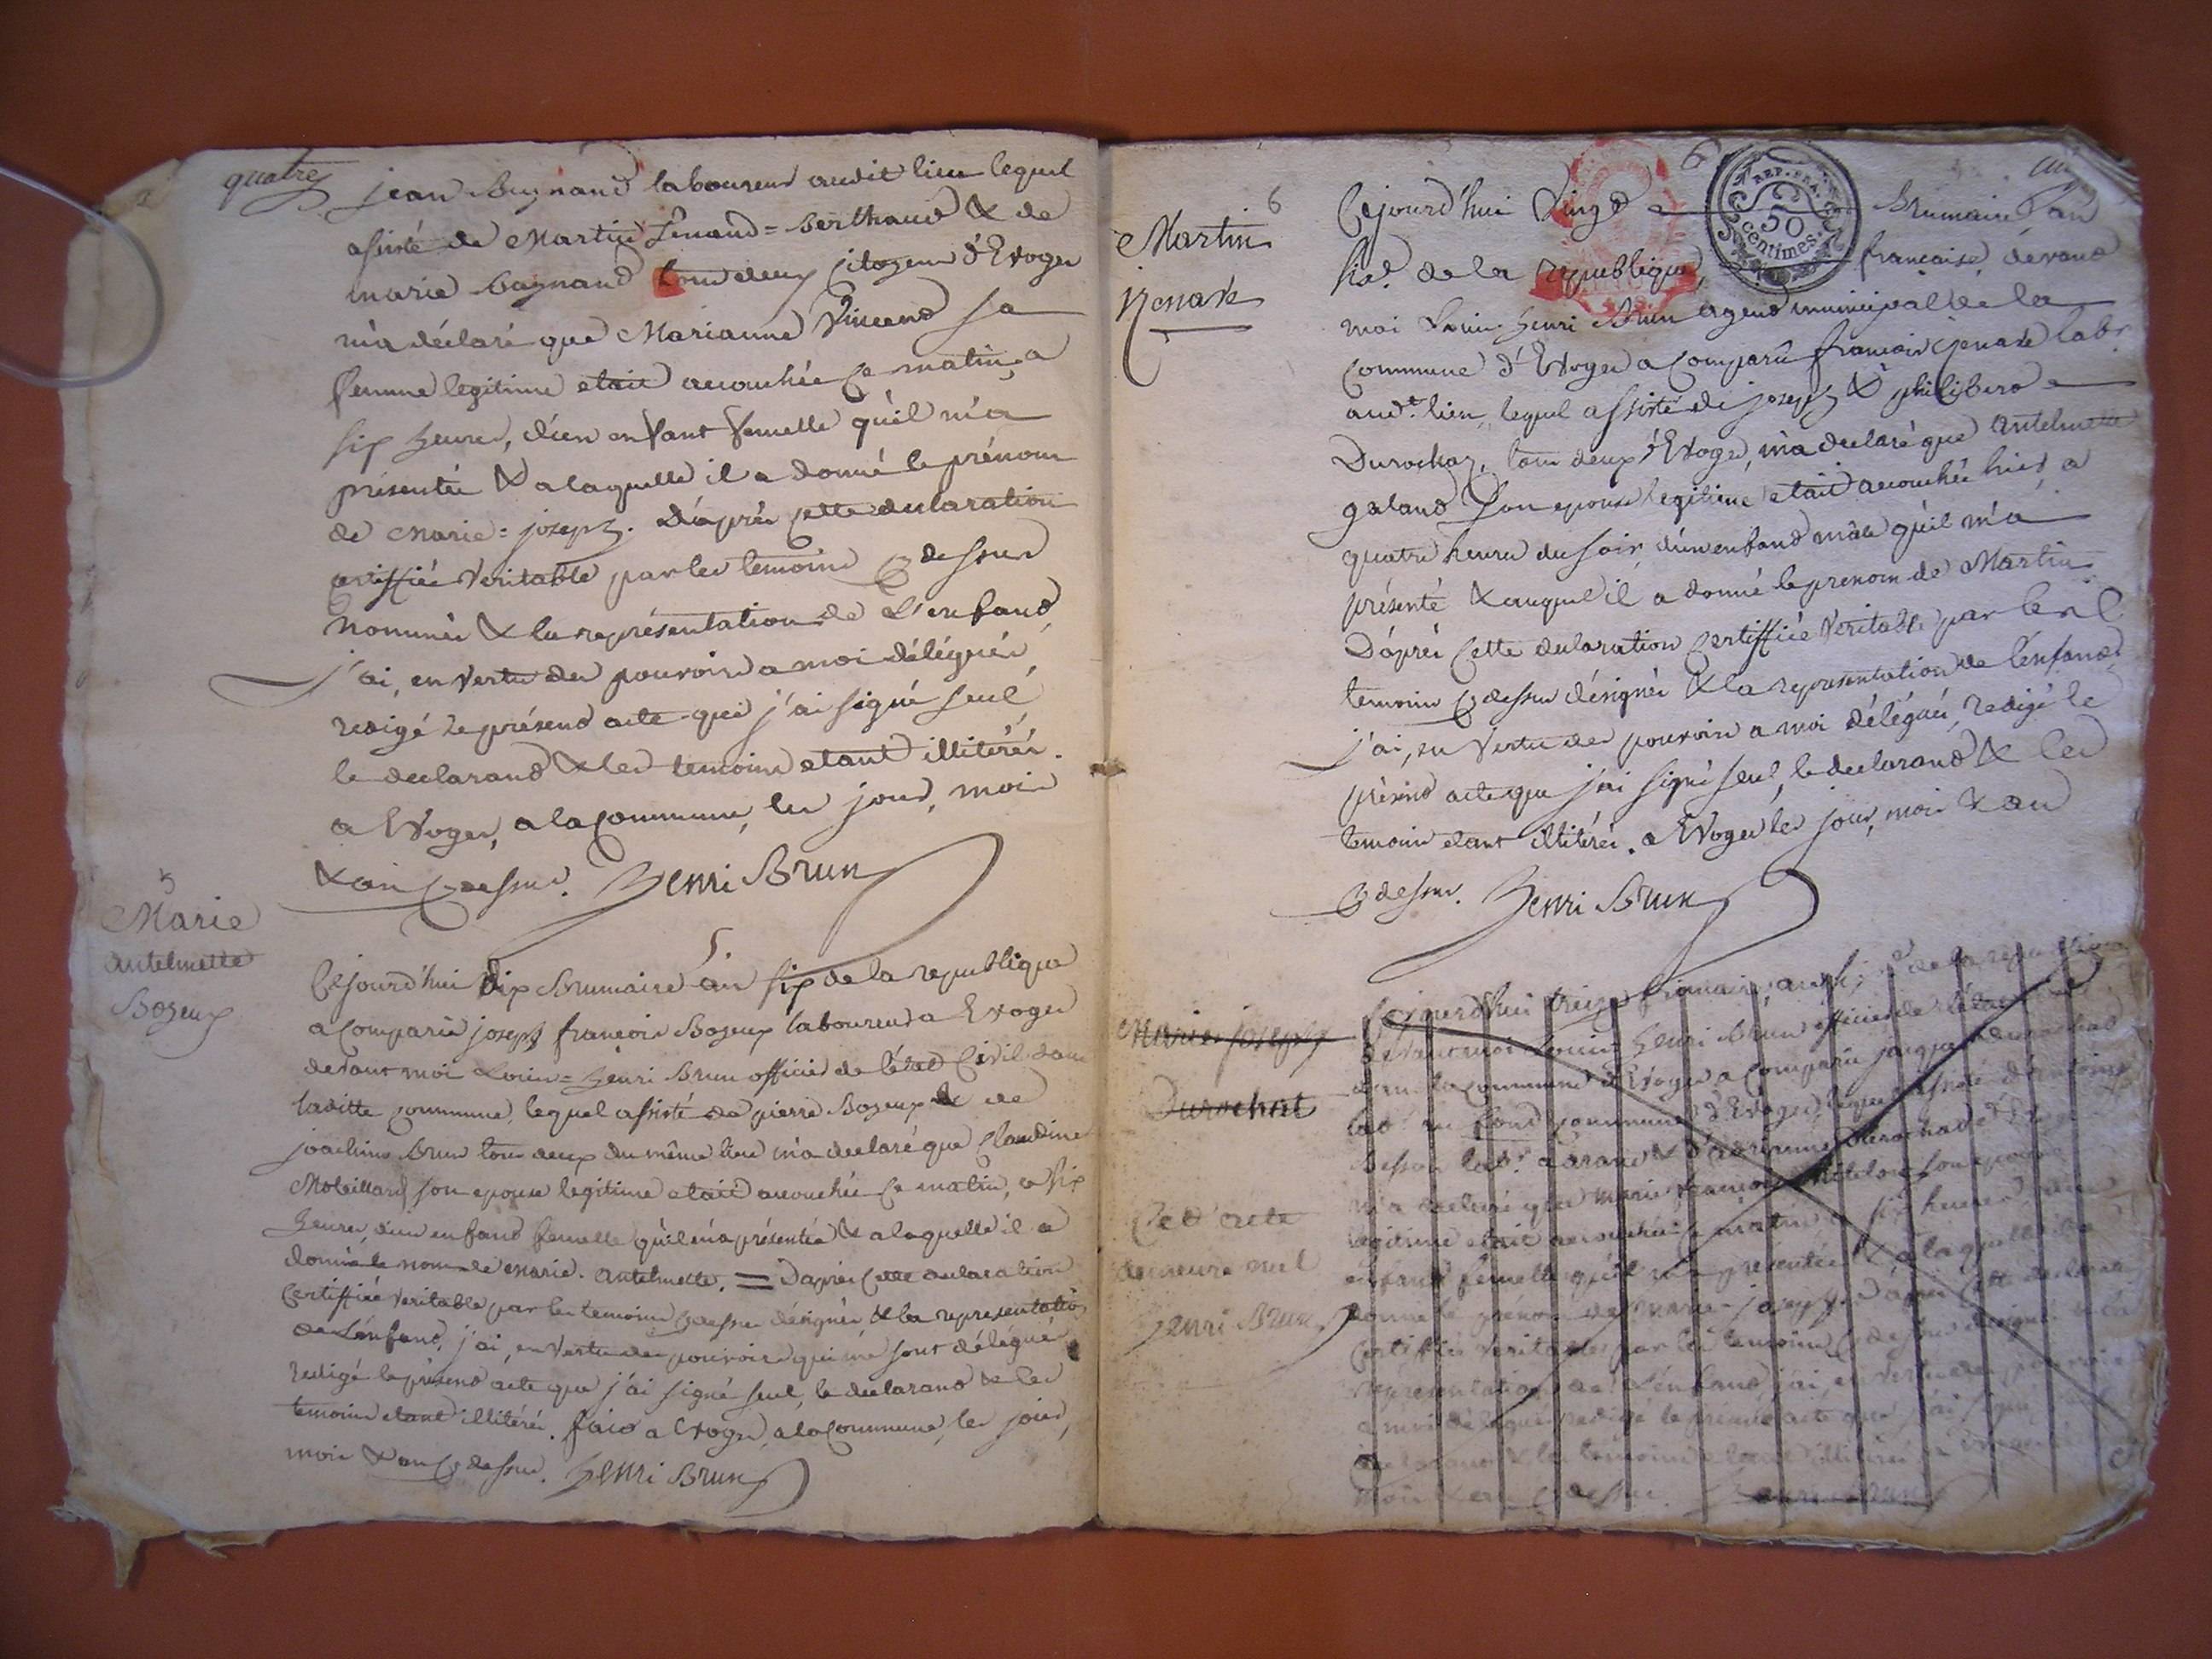 quatre
jean Bugnand laboureur audit lieu lequel
assisté de Martin Lénaud = Berthaud & de
marie bagnand tous deux citoyens d'Evoges
m'a déclaré que Marianne Vincend sa
femme legitime etait accouchée ce matin, a
six heures, d'un enfant femelle qu'il m'a
présentée & a laquelle il a donné le prénom
de marie = joseph. D'après cette declaration
certiffiée veritable par les temoins cy dessus
nommés & la représentation de L'enfand,
j'ai, en vertu des pouvoirs a moi délégués,
redigé le présend acte que j'ai signé seul
le declarand & les temoins etant illitérés.
a Evoges, a la commune, les jour, mois
& an cy dessus. Henri Brun
5
Marie
antelmette
Bozeux
5
Cejourd'hui dix Brumaire an six de la republique
a comparu joseph françois Bozeux laboureur a Evoges
devant moi Louis = henri Brun officier de l'état Civil dans
laditte commune, lequel assisté de pierre Bozeux & de
joachim Brun tous deux du même lieu m'a declaré que Claudine
Mobillard son epouse legitime etait accouchée ce matin, a six
heures, d'un enfand femelle qu'il m'a présentée & a laquelle il a
donné le nom de marie. antelmette. = D'après cette declaration
certiffiée veritable par les temoins cy dessus désignés & la representatio
de L'énfand, j'ai, en vertu des pouvoirs qui me sont délégués
redigé le présend acte que j'ai signé seul, le declarand & les
temoins etant illitérés. faid a Evoges, a la commune, les jour,
mois & an cy dessus. Henri Brun
6
Martin
jenard
6
Cejourd'hui Vingt Brumaire l'an
six.e de la republique française, devand
moi Louis henri Brun agend municipal de la
commune d'Evoges a comparu francois jenard lab.r
aud.t lieu, lequel assisté de joseph & philibero
Durochaz, tous deux d'Evoges, m'a declaré que antelmette
galand son epouse legitime etait accouchée hier, a
quatre heures du soir, d'un enfand mâle qu'il m'a
présenté & auquel il a donné le prenom de Martin
D'après cette declaration certiffiée veritable par les
temoins cy dessus désignés & la representation de l'enfand,
j'ai, en vertu des pouvoirs a moi délégués, redigé le
présend acte que j'ai signé seul, le declarand & les
temoins etant illitérés. a Evoges les jour, mois & an
cy dessus. Henri Brun
REP. FRA.
50
centimes.
Marie joseph
Durochat
Cet acte
demeure nul
henri Brun
Cejourd'hui treize frimaire, an six.e de la republique
devant moi Louis henri Brun officier de l'état
dans la commune d'Evoges a comparu jacque durochat
lab.r au commune d'Evoges, lequel assisté d'antoine
Besson lab.r a arand & d'
m'a declaré que marie françoise son epouse
legitime etait accouchée ce matin, a six heures, d'un
enfand femelle qu'il m'a presentée & a laquelle il a
donné le prénom de marie - joseph. D'après cette declara
certiffiée véritable par les temoins cy dessus désignés & la
representation de L'énfand, j'ai, en vertu des pouvoirs
a moi délégués redigé le présend acte que j'ai signé
declarand & les temoins etant illitérés a Evoges
mois & an cy dessus. Henri Brun